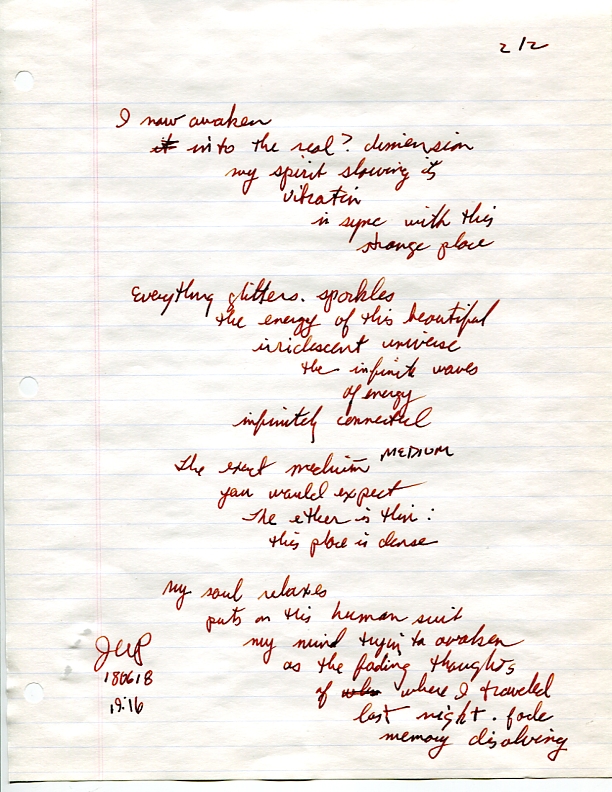 2/2
I now awaken
it into the real? dimension
my spirit slowing its
vibratin
in sync with this
strange place
Everything glitters. sparkles
the energy of this beautiful
irridescent universe
the infinite waves
of energy
infinitely connected
The exact medium MEDIUM
you would expect
The ether is thin:
this place is dense
my soul relaxes
puts on this human suit
my mind trying to awaken
as the fading thoughts
of where I traveled
last night. fade
memory disolving
180618
19:16